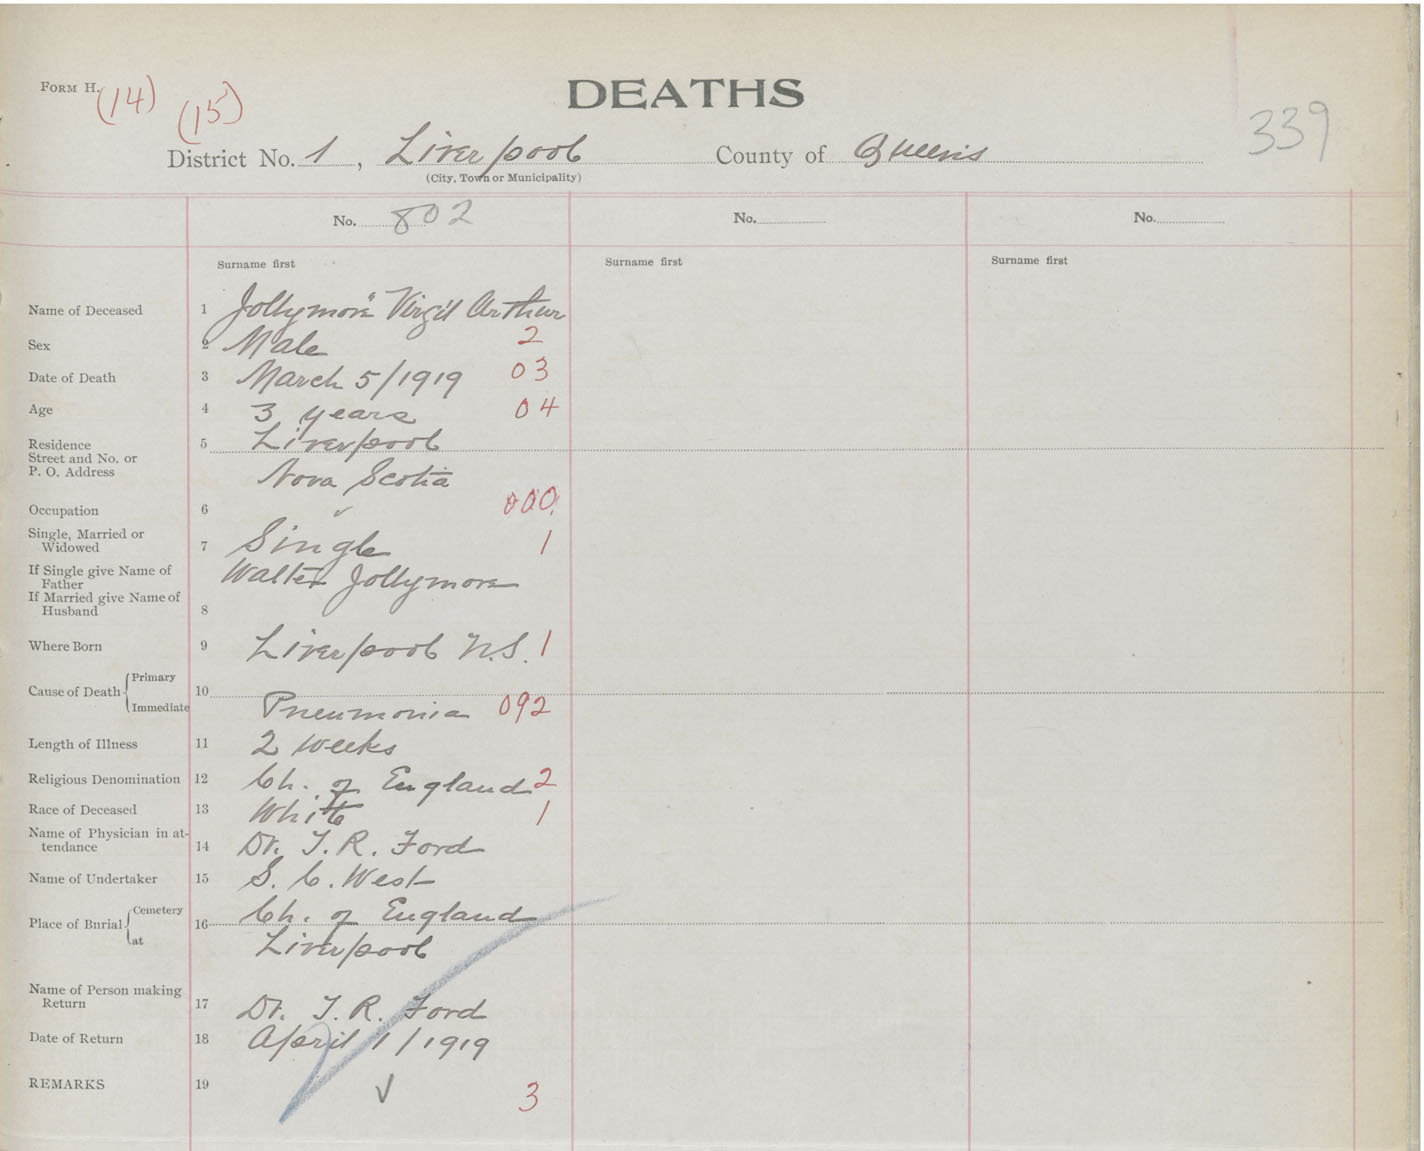 FORM H.
(14) (15)
DEATHS
339
District No. 1, Liverpool County of Queens
(City, Town or Municipality)
No. 802 No. No.
Surname first Surname first Surname first
Name of Deceased 1 Jollymore Virgil Arthur
Sex 2 Male 2
Date of Death 3 March 5/1919 03
Age 4 3 years 04
Residence 5 Liverpool
Street and No. or
P. O. Address Nova Scotia
Occupation 6 000
Single, Married or
Widowed 7 Single 1
If Single give Name of
Father Walter Jollymore
If Married give Name of
Husband 8
Where Born 9 Liverpool N.S. 1
Primary
Cause of Death 10
Immediate Pneumonia 092
Length of Illness 11 2 weeks
Religious Denomination 12 Ch. of England 2
Race of Deceased 13 White 1
Name of Physician in at-
tendance 14 Dr. T. R. Ford
Name of Undertaker 15 S. C. West
Cemetery Ch. of England
Place of Burial 16
at Liverpool
Name of Person making
Return 17 Dr. T. R. Ford
Date of Return 18 April 1/1919
REMARKS 19 3